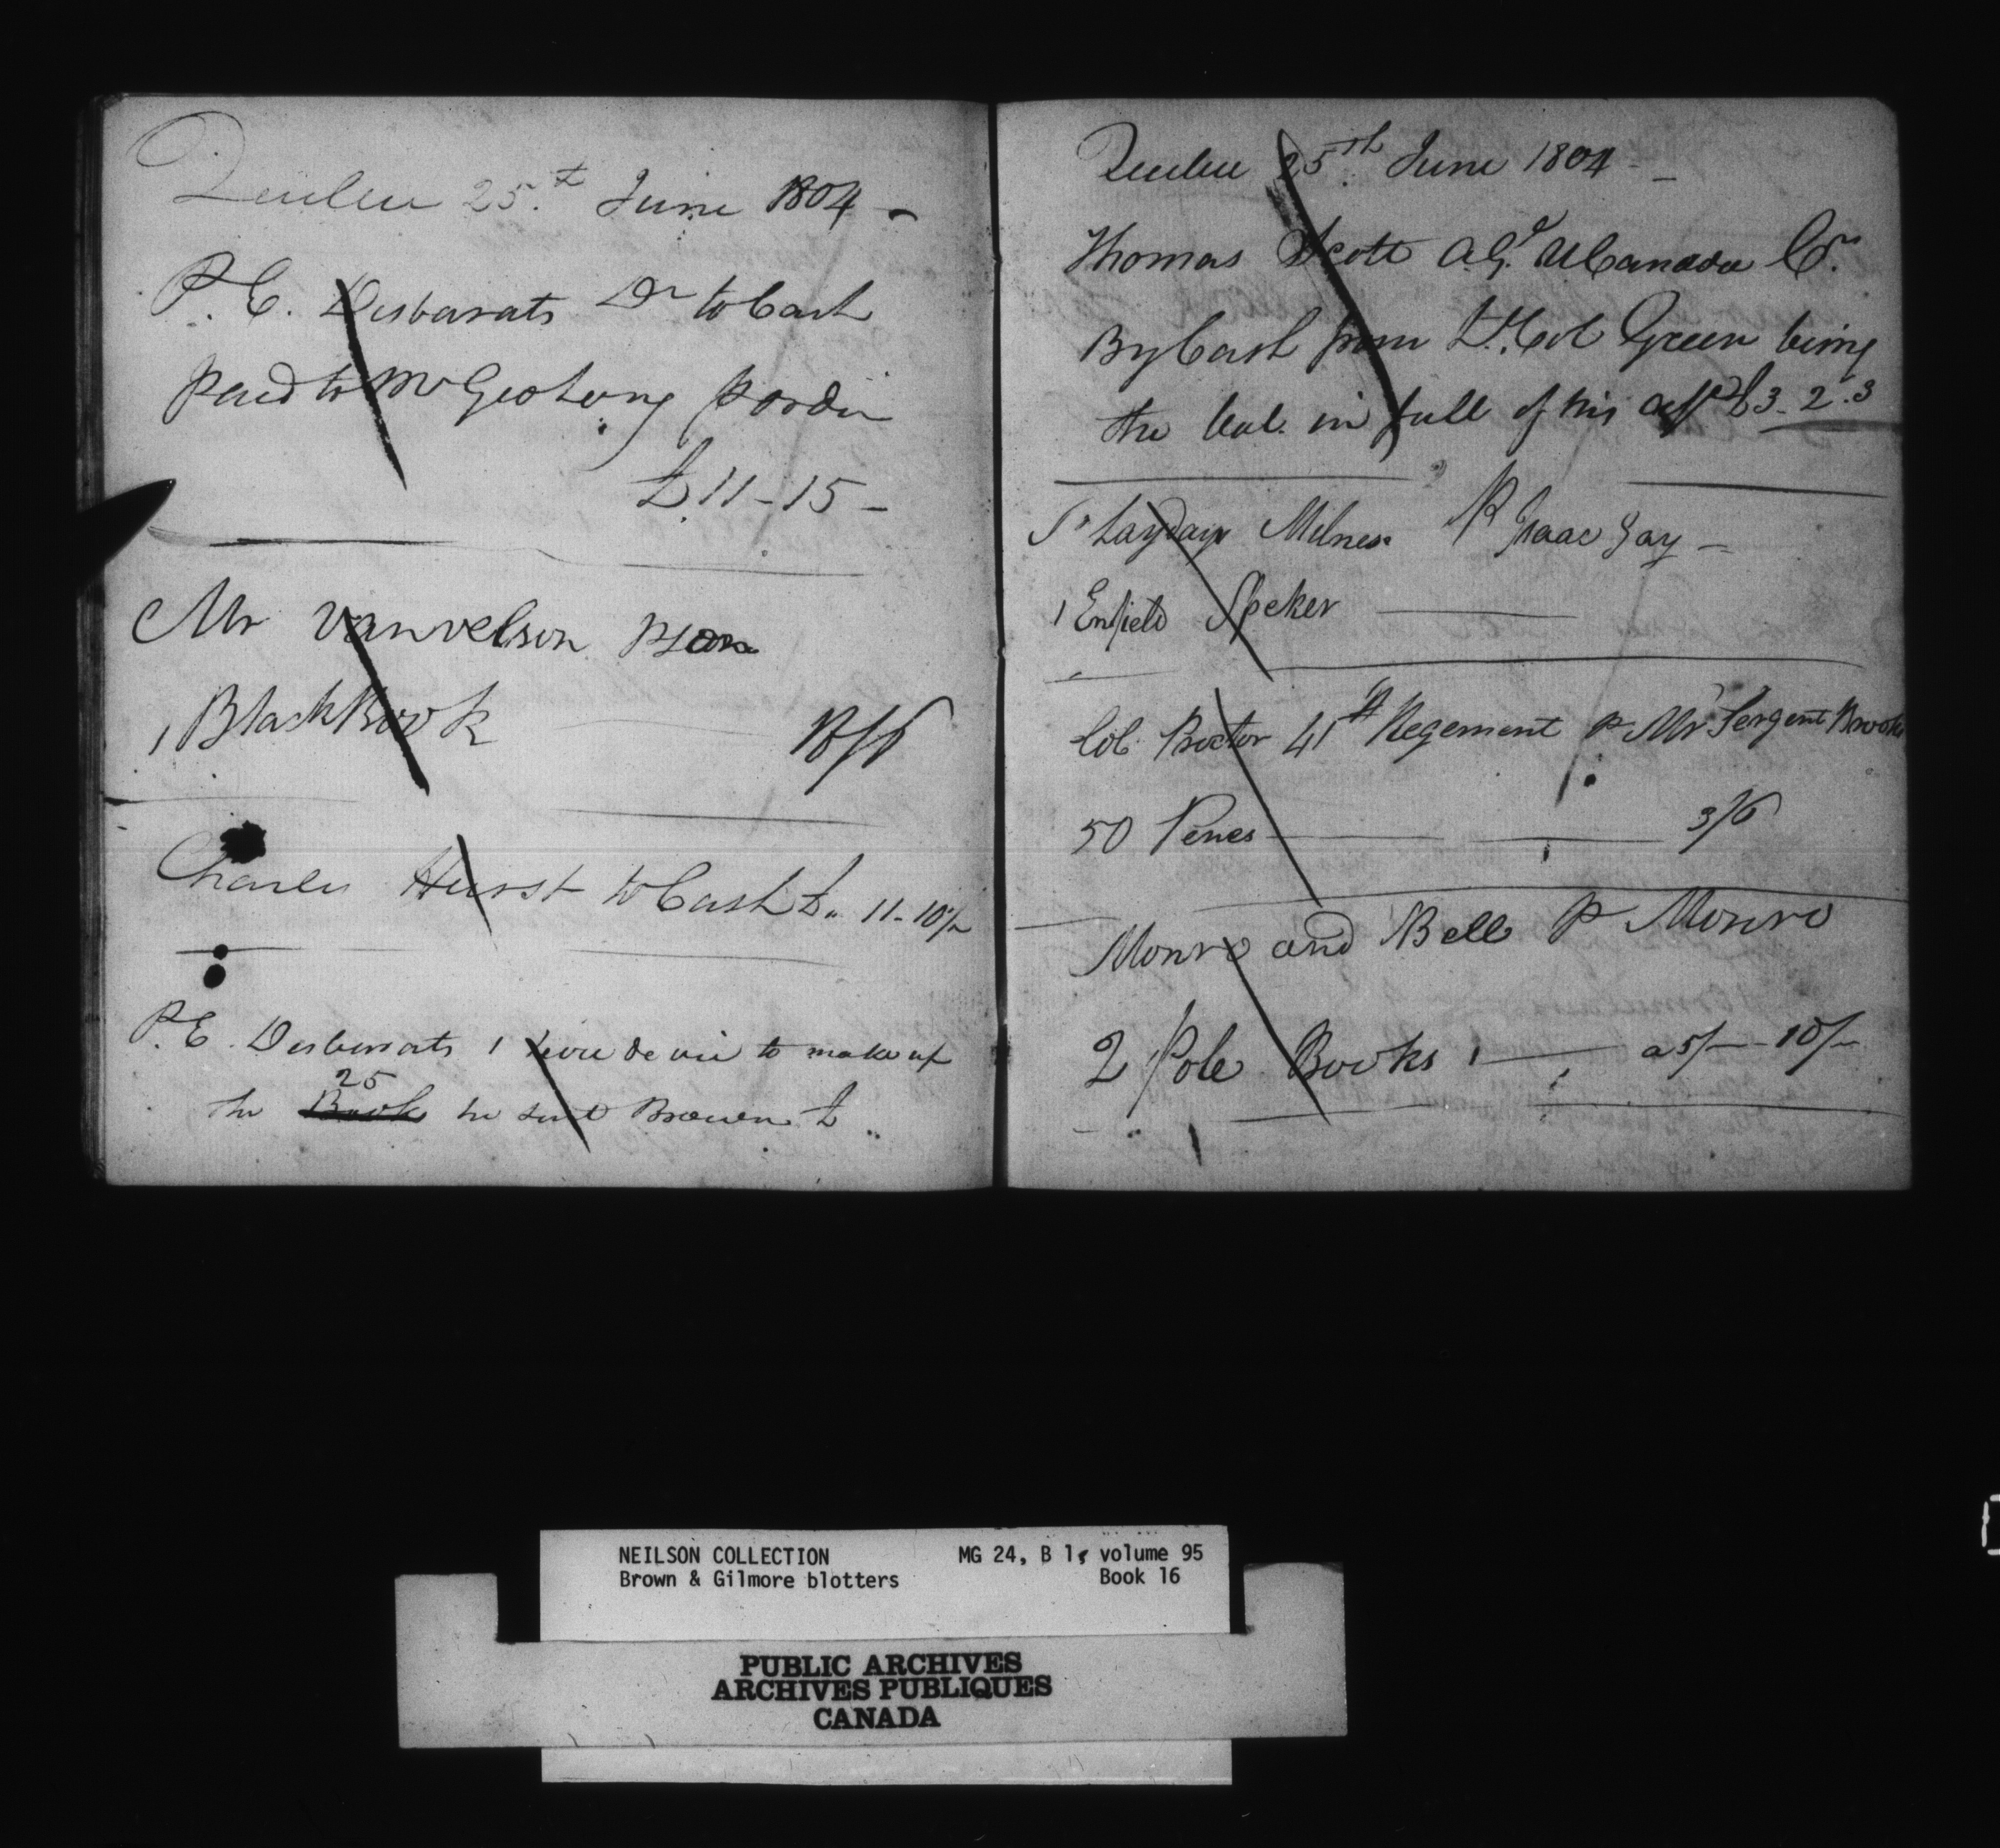 Quebec 25.t June 1804 -
P. E. Desbarats Dr to Cash
paid to Mr Geo Long p order
£.11-15-
Mr Vanvelson
1 Black Book
Charles Hurst to Cash £.. 11-10/-
P. E. Desbarats 1 de vie to make up
25
the Book he sent Brown £ ..
Quebec 25th June 1804 -
Thomas Scott A.G.l UCanada Cr.
By Cash from Lt. Col Green being
the bal. in full of his acct £3-2.3
Milnes P Isaac Gay -
1 Enfield Speker
Col Proctor 41th Regement p Mr Sergent Brooks
50 Penes 3/6
Monro and Bell P Monro
2 Pole Books a 5/- 10/-
NEILSON COLLECTION MG 24, B 1, volume 95
Brown & Gilmore blotters Book 16
PUBLIC ARCHIVES
ARCHIVES PUBLIQUES
CANADA